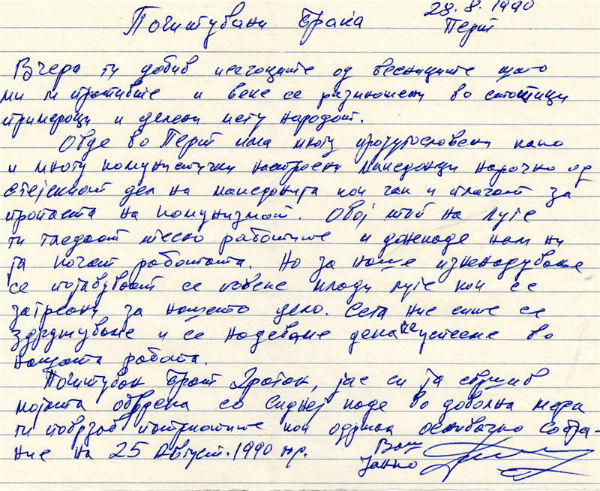 28.8.1990
Почитувани Браќа Перт
Вчера ги добив исечоците од весниците што
ми ги пративте и веќе се размножени во стотици
примероци и делени меѓу народот.
Овде во Перт има многу југословени како
и многу комунистички настроени македонци нарочно од
егејскиот дел на македонија кои чак и плачат за
пропаста на комунизмот. Овој тип на луѓе
ги гледаат тесно работите и донекаде нам ни
ја кочат работата. Но за наше изненадување
се појавуваат се повеќе млади луѓе кои се
загреани за нашето дело. Сега ние сите се
здружуваме и се надеваме дека ќе успееме во
нашата работа.
Почитуван Брат Драган, јас си ја свршив
мојата обврска со Сиднеј каде во доволна мера
ги поврзав патриотите кои одржаа основачко собра-
ние на 25 Август. 1990 год. Ваш
Јанко